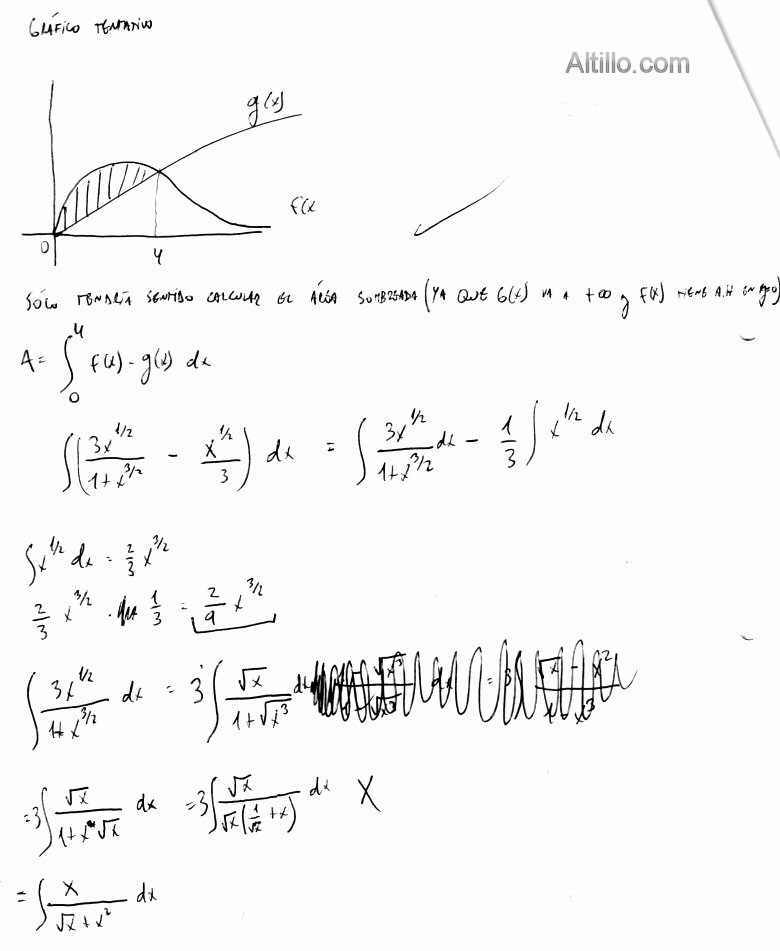 GRÁFICO TENTATIVO
Altillo.com
g(x)
f(x
0
4
SÓLO TENDRÍA SENTIDO CALCULAR EL ÁREA SOMBREADA (YA QUE G(x) VA A +∞ y F(x) TIENE A.H EN y=0)
A = ∫₀⁴ f(x) - g(x) dx
∫(3x^{1/2}/(1+x^{3/2}) - x^{1/2}/3) dx = ∫ 3x^{1/2}/(1+x^{3/2}) dx - 1/3 ∫ x^{1/2} dx
∫x^{1/2} dx = 2/3 x^{3/2}
2/3 x^{3/2} · 1/3 = 2/9 x^{3/2}
∫ 3x^{1/2}/(1+x^{3/2}) dx = 3 ∫ √x/(1+√x³) dx
=3∫ √x/(1+x√x) dx =3∫ √x/(√x(1/√x + x)) dx X
= ∫ x/(√x+x²) dx